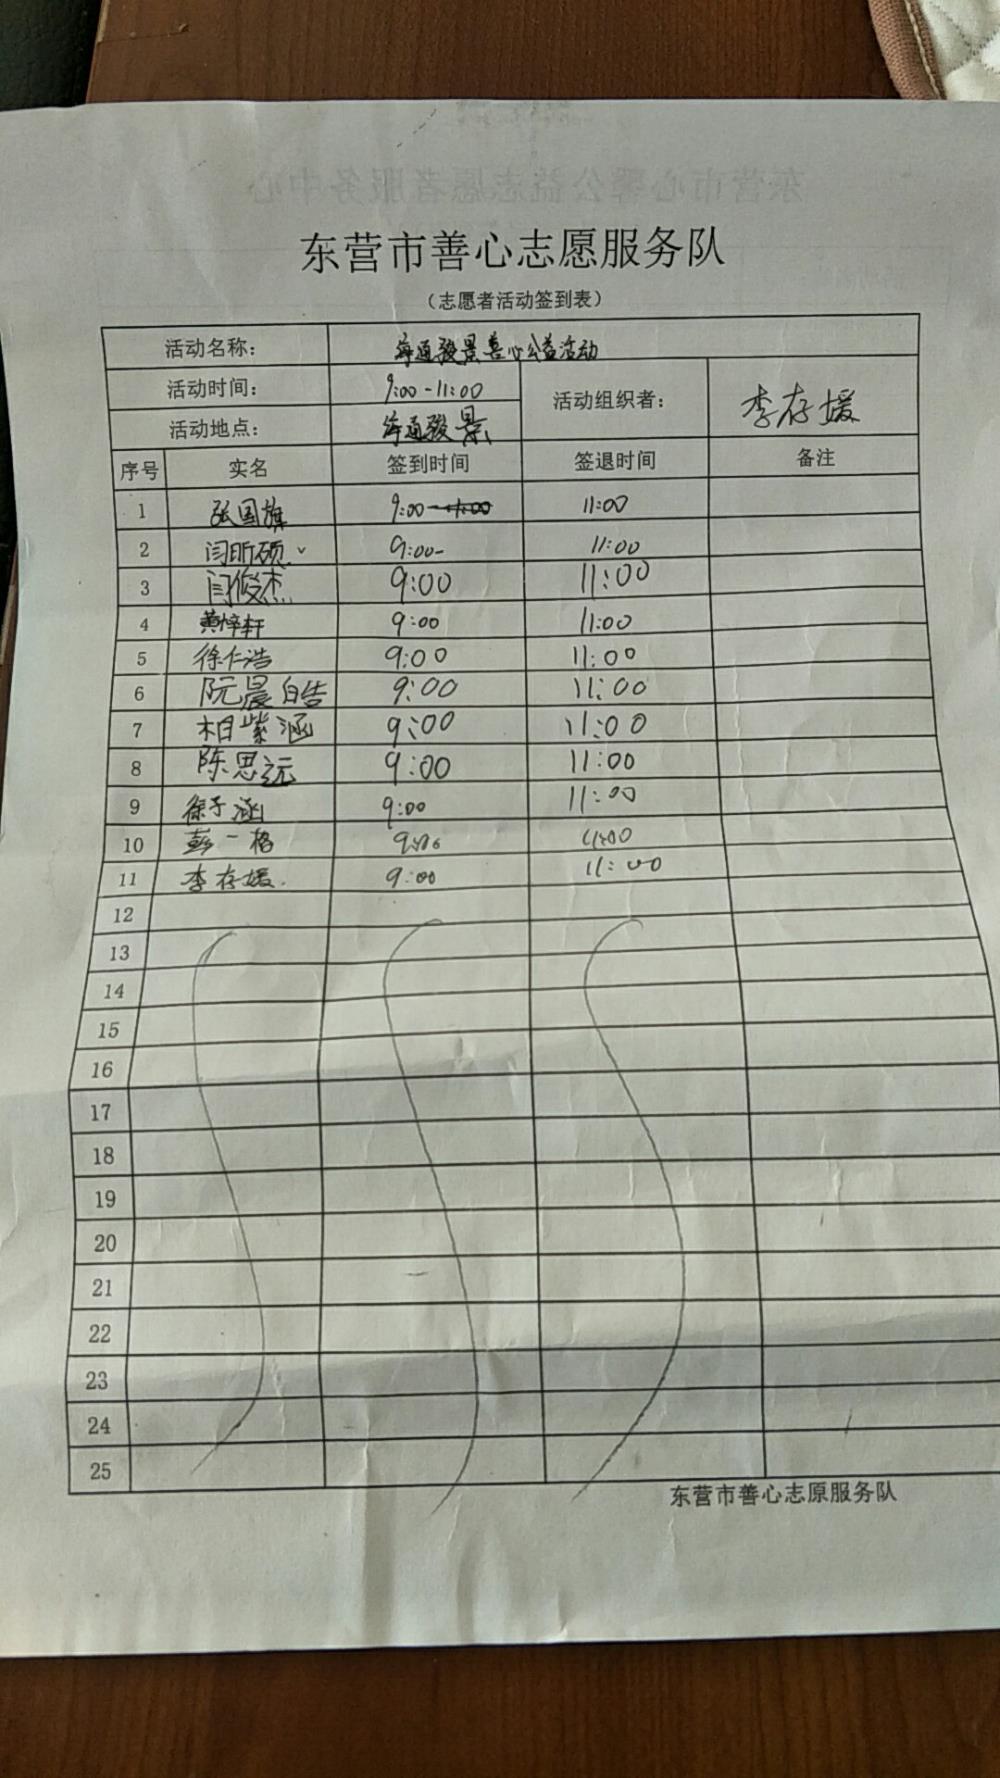 东营市善心志愿服务队
（志愿者活动签到表）
活动名称： 海通骏景善心公益活动
活动时间： 9:00-11:00 活动组织者： 李存媛
活动地点： 海通骏景
序号 实名 签到时间 签退时间 备注
1 张国旗 9:00 11:00
2 闫昕硕 9:00- 11:00
3 闫俊杰 9:00 11:00
4 黄梓轩 9:00 11:00
5 徐仁浩 9:00 11:00
6 阮晨皓 9:00 11:00
7 相紫涵 9:00 11:00
8 陈思远 9:00 11:00
9 徐子涵 9:00 11:00
10 彭一格 9:00 11:00
11 李存媛. 9:00 11:00
12
13
14
15
16
17
18
19
20
21
22
23
24
25
东营市善心志原服务队